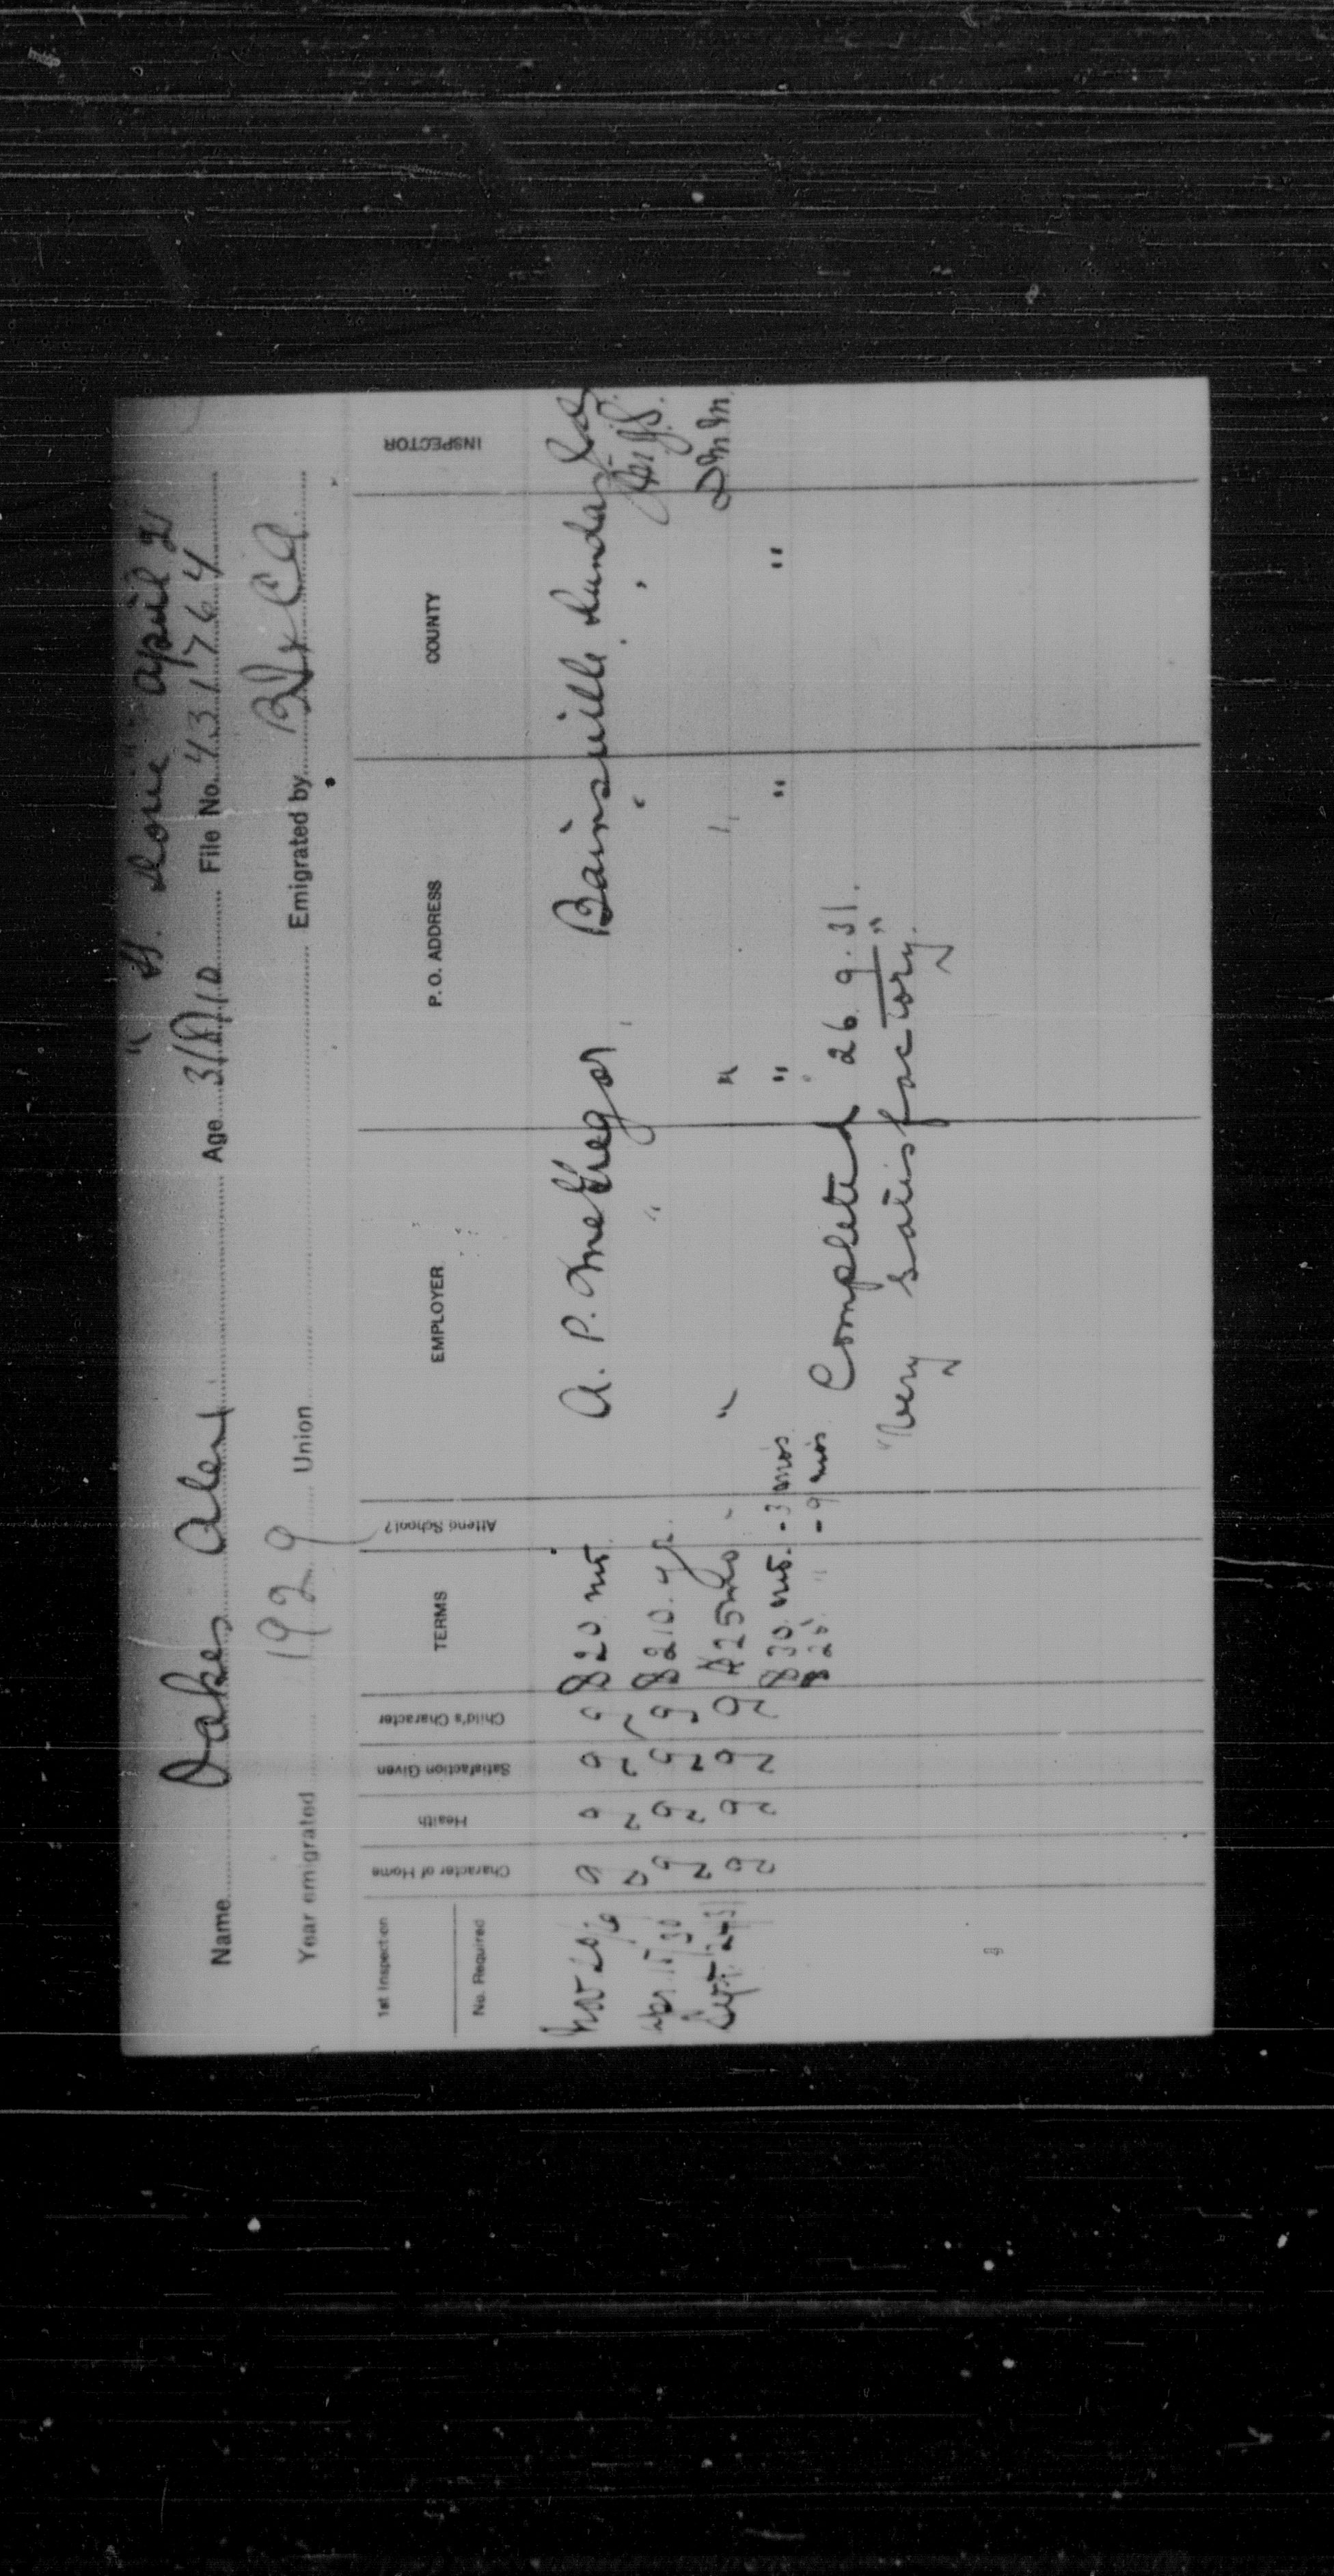 " St. April 2
Name Oakes Alex Age 3/8/10 File No. 431764
Year emigrated 1929 Union Emigrated by
1st Inspection No. Required Character of Home Health Satisfaction Given Child's Character TERMS Attend School? EMPLOYER P. O. ADDRESS COUNTY INSPECTOR
Nov 20/29 g g g g $20 mo. A. P. McGregor Bainsville
Apr 11/30 g g g g $210. yr. " " "
Sept 24/31 g g g g $25 mo " " " D M M
$30 mo. - 3 mos " " "
$25 " - 9 mos
Completed 26. 9. 31.
"Very satisfactory."